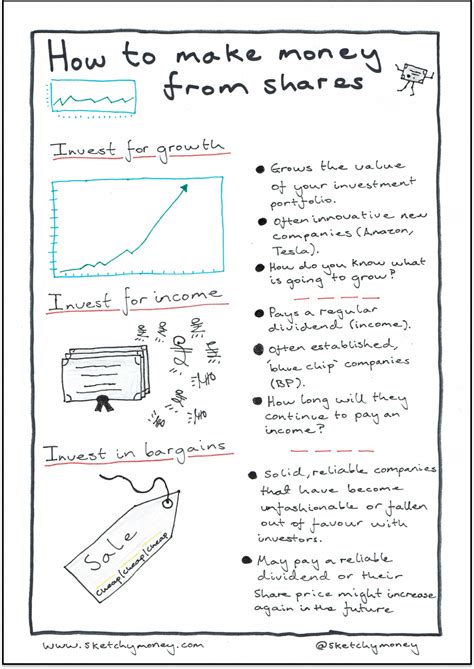 How to make money
from shares
Invest for growth
Grows the value
of your investment
portfolio.
Often innovative new
companies (Amazon,
Tesla).
How do you know what
is going to grow?
Invest for income
Pays a regular
dividend (income).
Often established,
'blue chip' companies
(BP).
How long will they
continue to pay an
income?
Invest in bargains
Sale
cheap/cheap/cheap
Solid, reliable companies
that have become
unfashionable or fallen
out of favour with
investors.
May pay a reliable
dividend or their
share price might increase
again in the future
www.sketchymoney.com
@sketchymoney